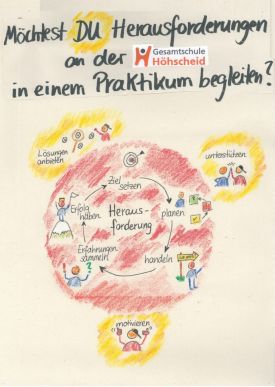 Möchtest DU Herausforderungen
an der Gesamtschule
Höhscheid
in einem Praktikum begleiten?
Lösungen
anbieten
unterstützen
Ziel
setzen
Erfolg
haben
planen
Heraus-
forderung
Erfahrungen
sammeln
handeln
motivieren